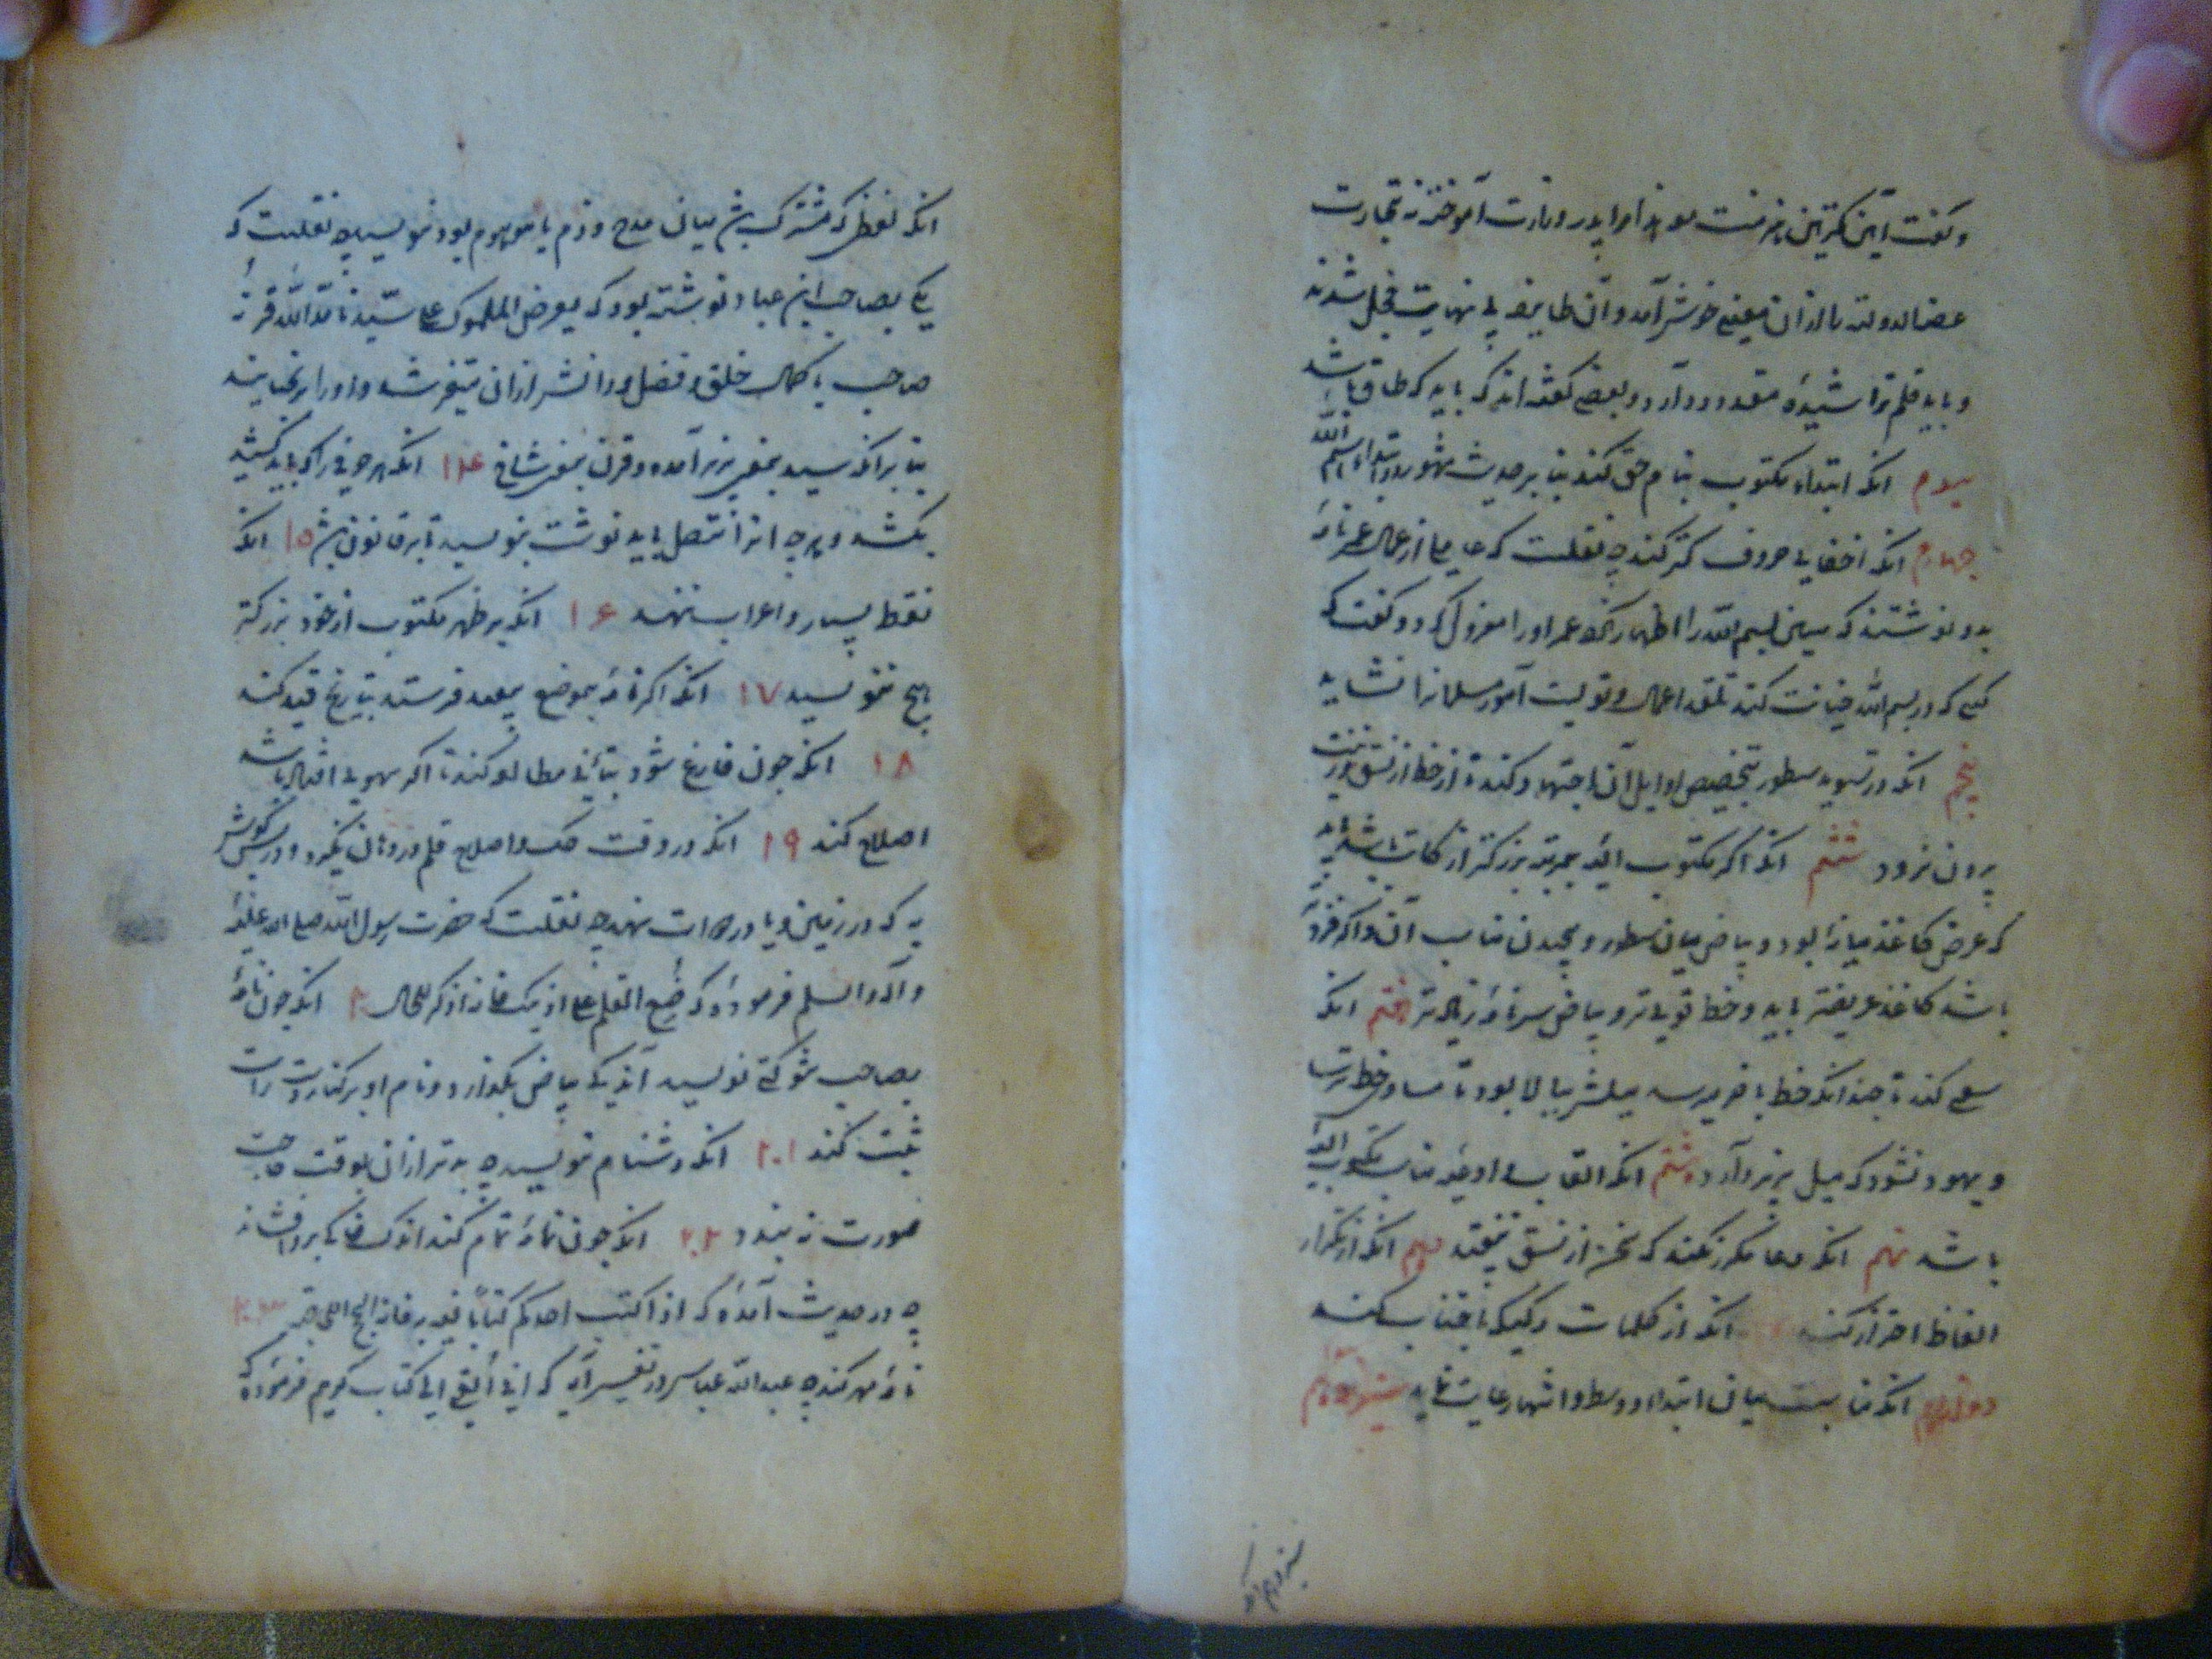 وگفت این کمترین را خدمت
عضدالدوله را از آن معنی خوش آمد و آن طایفه بی نهایت خجل شدند
و باید قلم تراشیده متعدد دارد و بعضی گفته اند که باید که طاق باشد
سوم انکه ابتداء مکتوب بنام حق کند بنا بر حدیث مشهور الله
چهارم انکه اخفای حروف کمتر کند چه نقلست که عاملی از عمال عمر نامهٔ
بدو نوشتند که سین بسم الله را اظهار نکرد عمر اورا معزول کرد و گفت که
کسی که در بسم الله خیانت کند تقلد اعمال و تولیت امور مسلمانرا نشاید
پنجم انکه در تسوید سطور بتخصیص اوایل آن اجتهاد کند تا از خط از نسق
برون نرود ششم انکه اگر مکتوب الیه بمرتبه بزرکتر از کاتب باشد باید
که عرض کاغذ میانه بود و بیاض میان سطور و پیچیدن مناسب آن و اگر فروتر
باشد کاغذ عریضتر باید و خط قوی تر و بیاض سرنامه زیاده تر هفتم انکه
سعی کند تا چندانکه خط باخر میرسد میلش ببالا بود تا
و نشود که میل بزیر دارد هشتم انکه القاب و ادعیه مناسب مکتوب الیه
باشد نهم انکه دعا مکرر نکند که سخن از نسق نیفتد دهم انکه از تکرار
الفاظ احتراز کند انکه از کلمات رکیکه اجتناب کند
دوازدهم انکه مناسبت میان ابتدا و وسط و انتها رعایت نماید سیزدهم
سیزدهم انکه
انکه لفظی که مشترک باشد میان مدح و ذم یا موهوم بود ننویسد چه نقلست که
یکی بصاحب ابن عباد نوشته بود که یعرض المملوک علی سیدنا
صاحب با کمال خلق و فضل و دانش از ان متغیر شد و اورا برنجانیدند
بنا برانکه سید بمعنی بزر آمده و قرن بمعنی شاخ ۱۴ انکه هر حرفی را که باید کشید
بکشد و هرچه انرا متصل باید نوشت بنویسد تا بر قانون باشد ۱۵ انکه
نقط بسیار و اعراب ننهد ۱۶ انکه بر ظهر مکتوب از خود بزرکتر
هیچ ننویسد ۱۷ انکه اگر نامهٔ بموضع بعید فرستد بتاریخ قید کند
۱۸ انکه چون فارغ شود بتأنی مطالعه کند تا اگر سهوی افتاده باشد
اصلاح کند ۱۹ انکه در وقت حک و اصلاح قلم در دهان نگیرد و در پس گوش
نه که در زمین و یا در دوات نهد چه نقلست که حضرت رسول الله صلی الله علیه
و آله و السلم فرموده که ضع القلم علی اذنیک فانه اذکر للمال ۲۰ انکه چون نامهٔ
بصاحب شوکتی نویسد اندکی بیاض بگذارد و نام او بر کنار دست راست
ثبت کند ۲۱ انکه دشنام ننویسد چه بدتر از ان بوقت حاجت
صورت نبندد ۲۲ انکه چون نامه تمام کند اندک خاکی بر وافشاند
چه در حدیث آمده که اذا کتب احدکم کتاباً فلیتربه فانه انجح للحاجة ۲۳
نامه مهر کند چه عبدالله عباس در تفسیر آیه که انی ألقی الی کتاب کریم فرموده که